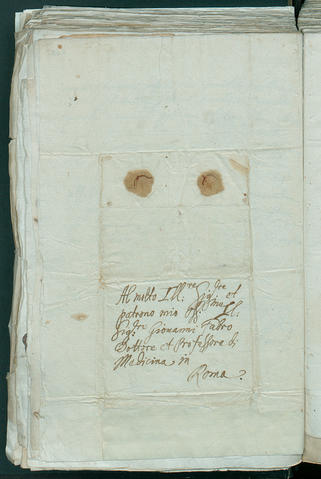 Al molto Ill.re Sig.re et
patrono mio oss.mo Il
Sig.re Giovanni Fabro
Dottore et Professore di
Medicina in
Roma